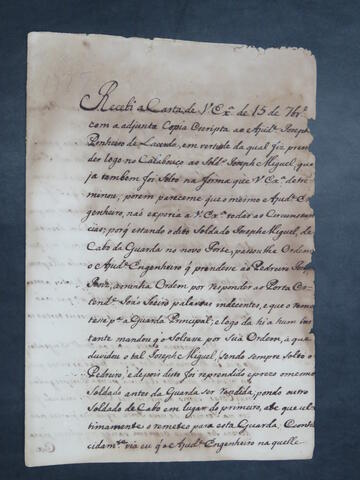 Recebi a Carta de V. Ex.ª de 15 de 7br.º
com a adjunta Copia escripta ao Ajud.e Joseph
Pinheiro de Lacerda, em virtude da qual fiz pren-
der logo no Calabouço ao Sold.º Joseph Miguel, que
ja tambem foi Solto na forma que V. Ex.ª deter-
minou; porem pareceme que o mesmo Ajud.e En-
genheiro, naõ exporia a V. Ex.ª todas as Circunstan-
cias; porq̃ estando o dito Soldado Joseph Miguel, de
Cabo da Guarda no novo Forte, Ordem
o Ajud.e Engenheiro q̃ prendese ao Pedreiro
Ordem por responder ao Porta
palavras indecentes, e que o reme-
tese p.ª a Guarda Principal; e logo da hi a hum ins-
tante mandou q̃ o Soltase por Sua Ordem, a que
duvidou o tal Joseph Miguel, Sendo sempre Solto o
Pedreiro, e depois disto foi reprendido e prezo o mesmo
Soldado antes da Guarda ser rendida, pondo outro
Soldado de Cabo em lugar do primeiro, até que ul-
timamente o remeteo para esta Guarda. Conhe
cidam.te via eu q̃ o Ajud.e Engenheiro naquelle